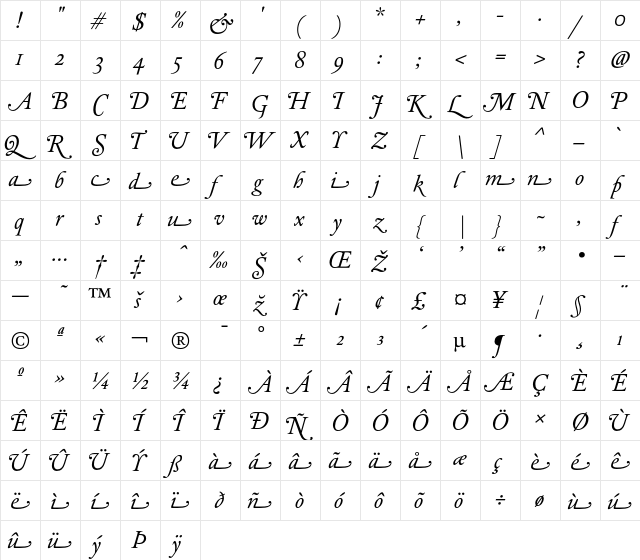 ! " # $ % & ' ( ) * + , - . / 0
1 2 3 4 5 6 7 8 9 : ; < = > ? @
A B C D E F G H I J K L M N O P
Q R S T U V W X Y Z [ \ ] ^ _ `
a b c d e f g h i j k l m n o p
q r s t u v w x y z { | } ~ ‚ ƒ
„ … † ‡ ˆ ‰ Š ‹ Œ Ž ‘ ’ “ ” • –
— ˜ ™ š › œ ž Ÿ ¡ ¢ £ ¤ ¥ ¦ § ¨
© ª « ¬ ® ¯ ° ± ² ³ ´ µ ¶ · ¸ ¹
º » ¼ ½ ¾ ¿ À Á Â Ã Ä Å Æ Ç È É
Ê Ë Ì Í Î Ï Ð Ñ Ò Ó Ô Õ Ö × Ø Ù
Ú Û Ü Ý ß à á â ã ä å æ ç è é ê
ë ì í î ï ð ñ ò ó ô õ ö ÷ ø ù ú
û ü ý Þ ÿ